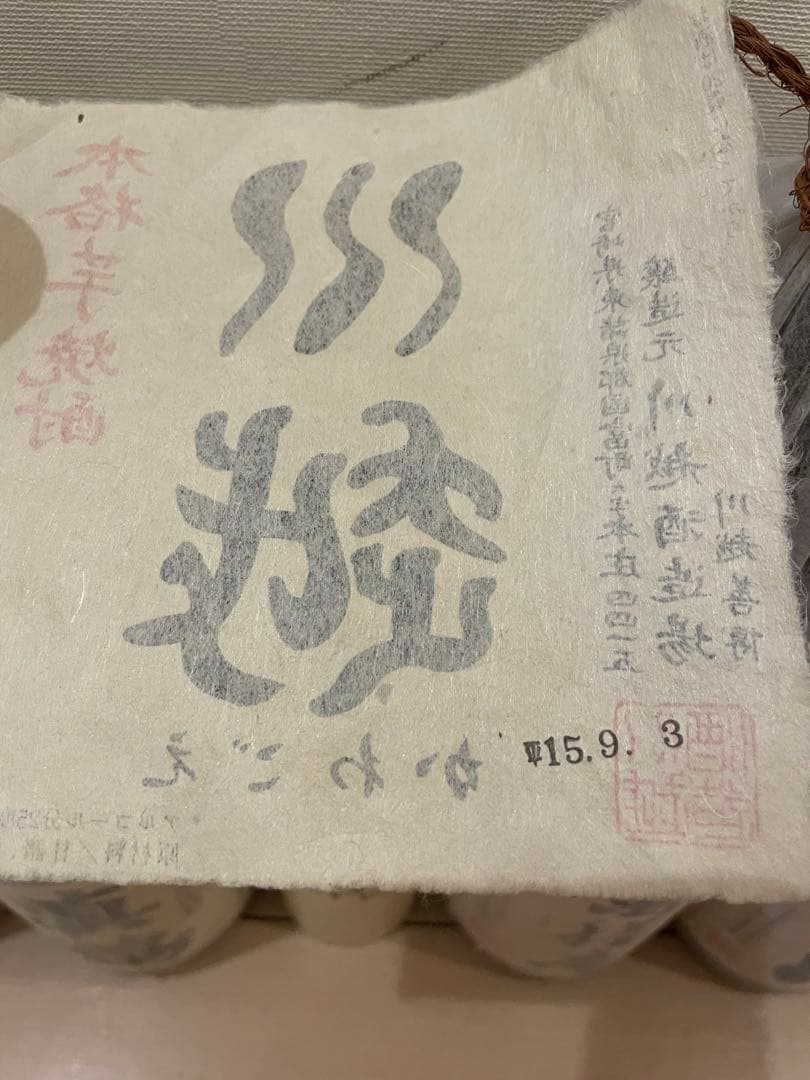 本格芋焼酎
川越
かわごえ
宮崎県東諸県郡国富町大字本庄四四一五
醸造元 川越酒造場
川越善博
▽15.9. 3
・アルコール分25
原材料/甘藷、